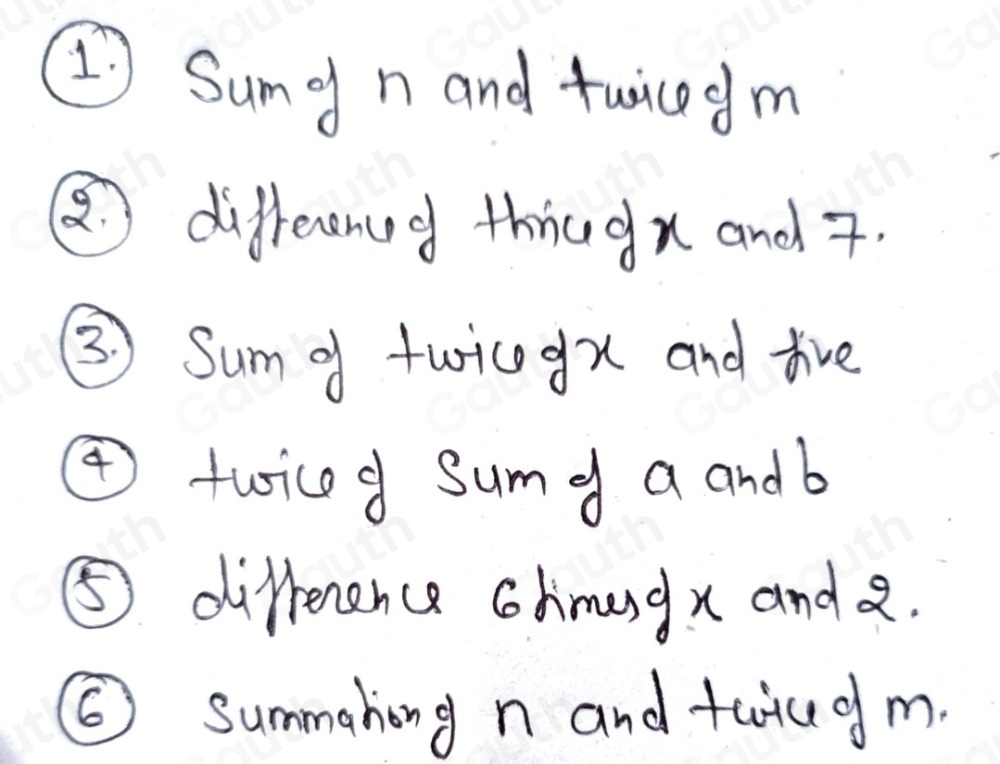 1. Sum of n and twice of m
2. difference of thrice of x and 7.
3. Sum of twice of x and five
4 twice of Sum of a and b
5 difference 6 times of x and 2.
6 summation of n and twice of m.